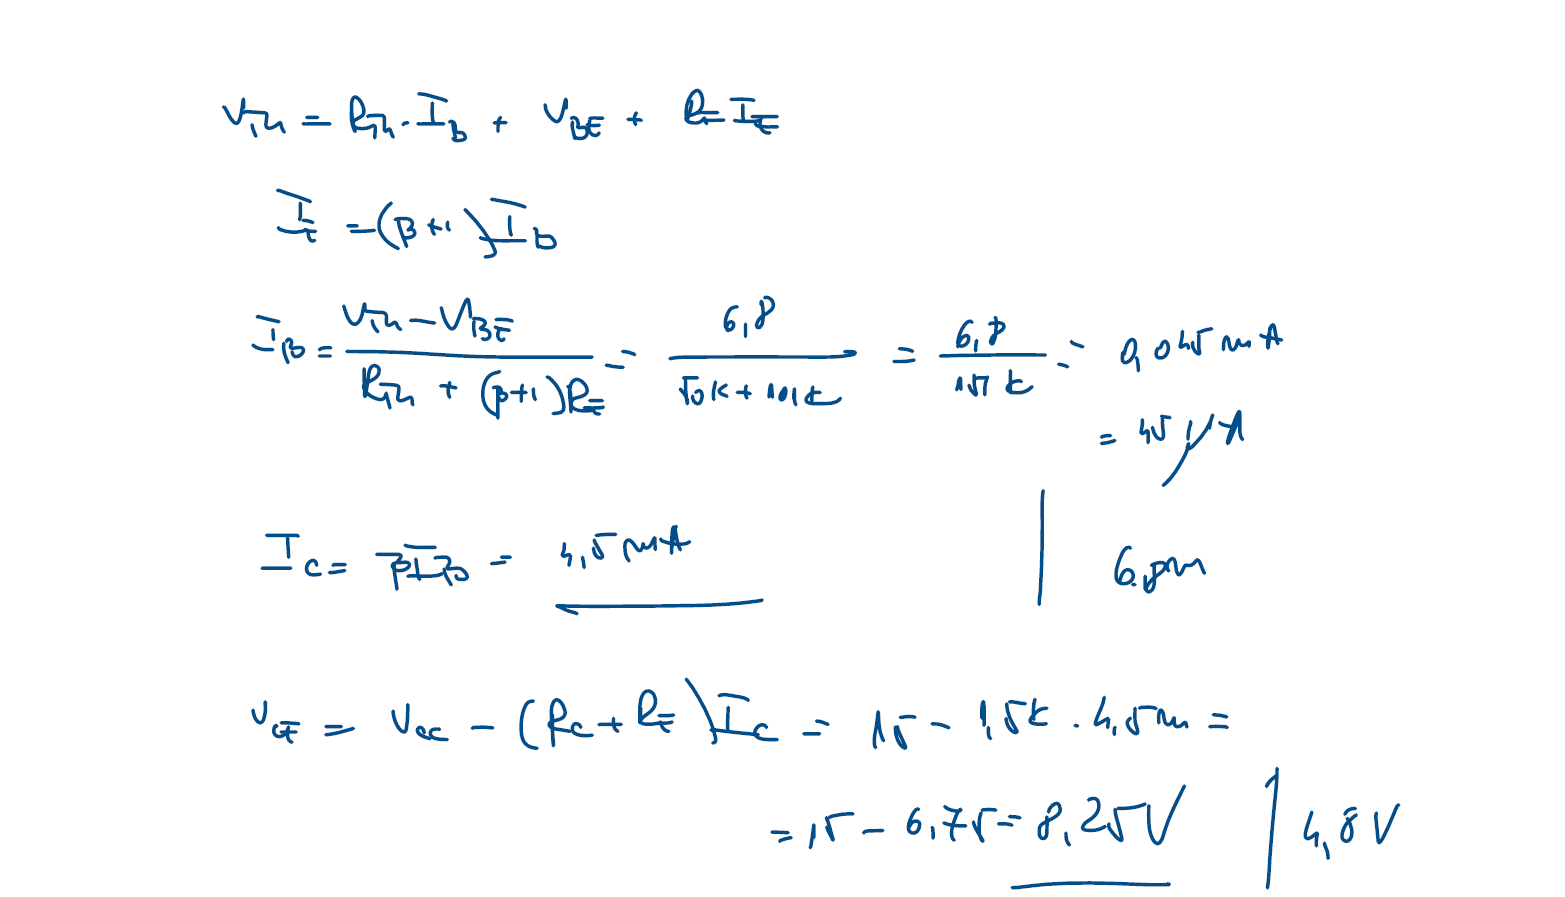 V_Th = R_Th · I_b + V_BE + R_E I_E
I_E = (β+1) I_b
I_B = (V_Th − V_BE) / (R_Th + (β+1)R_E) = 6,8 / (50k + 101k) = 6,8 / 151k = 0,045 mA
= 45 μA
I_C = β I_B = 4,5 mA | 6.8m
V_CE = V_CC − (R_C + R_E) I_C = 15 − 1,5k · 4,5m =
= 15 − 6,75 = 8,25V | 4,8 V